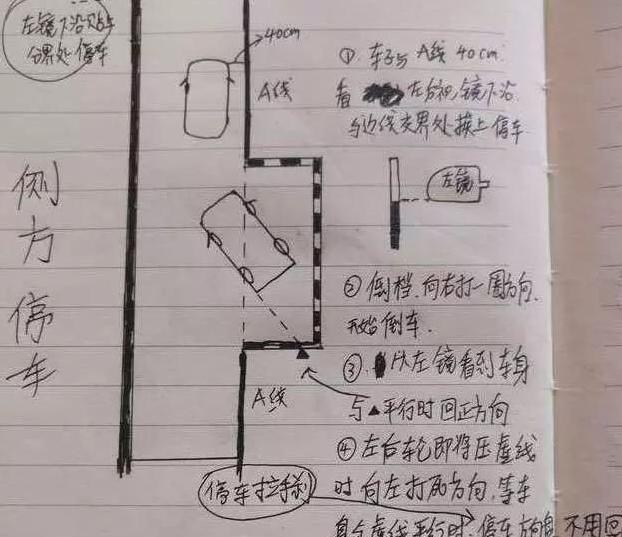 左镜下沿贴与
分界处停车
侧方停车
40cm
A线
① 车子与A线40cm.
看 左后视镜下沿
与边线交界处接上停车
左镜
② 倒档.向右打一圈方向.
开始倒车.
③. 从左镜看到车身
与▲平行时回正方向
A线
④ 左后轮即将压虚线
时向左打死方向.等车
停车拉手刹
身与虚线平行时.停车方向 不用回